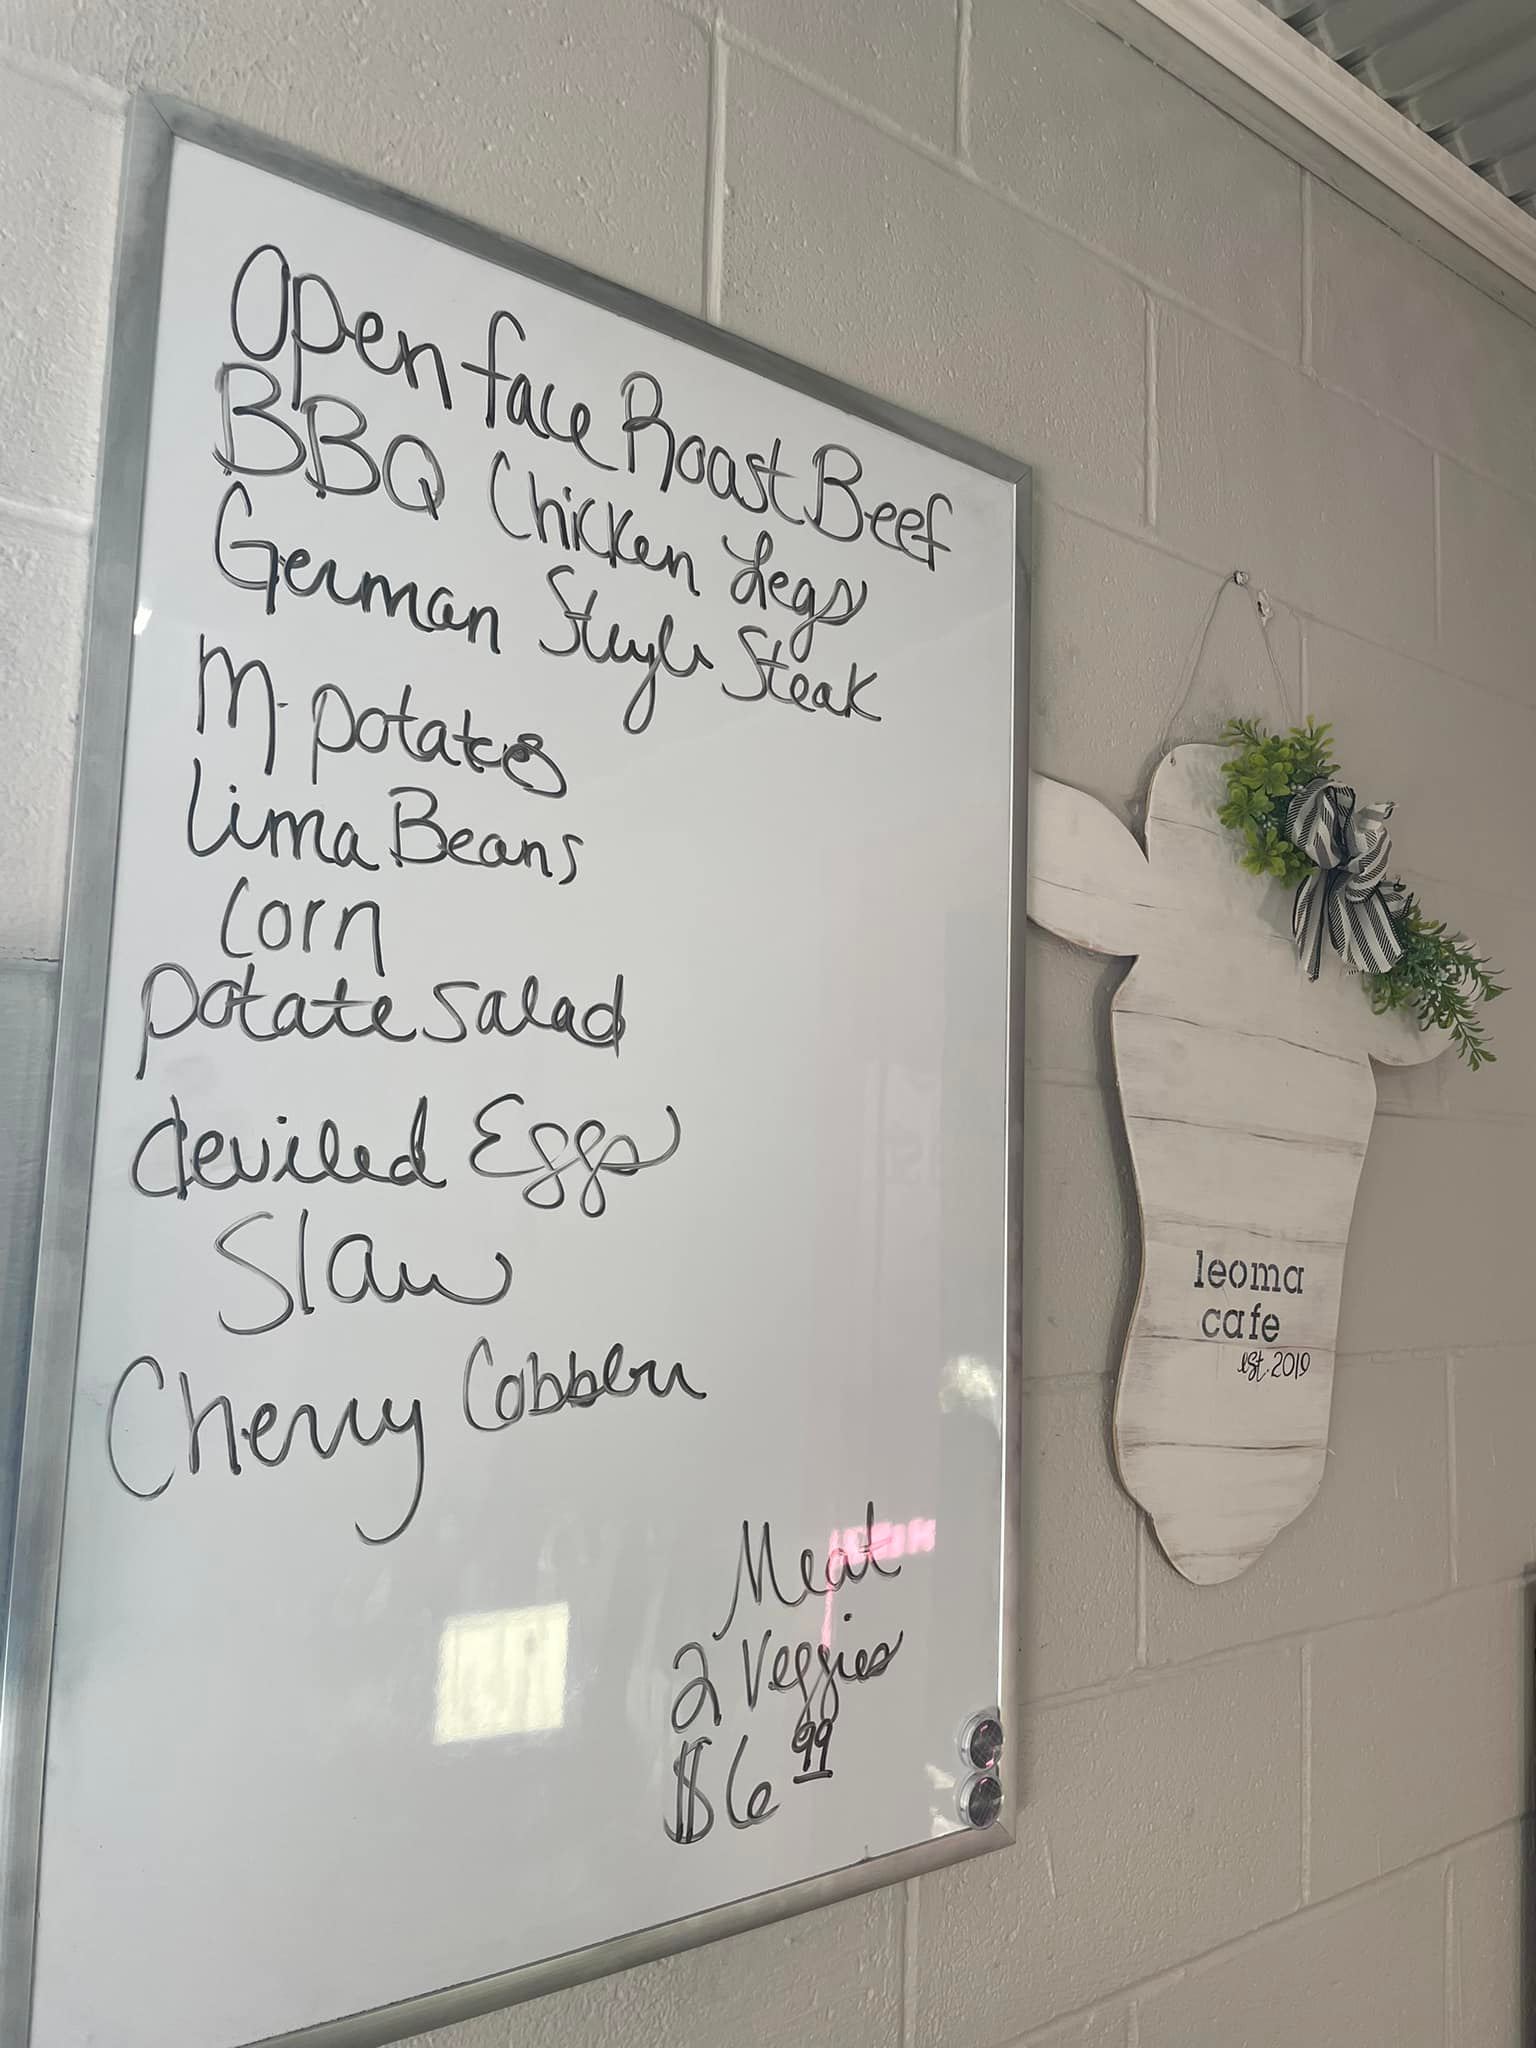 Open face Roast Beef
BBQ Chicken Legs
German Style Steak
M. potatoes
Lima Beans
Corn
potatoe salad
deviled Eggs
Slaw
Cherry Cobbler
Meat
2 Veggies
$6 99
leoma
cafe
est. 2019